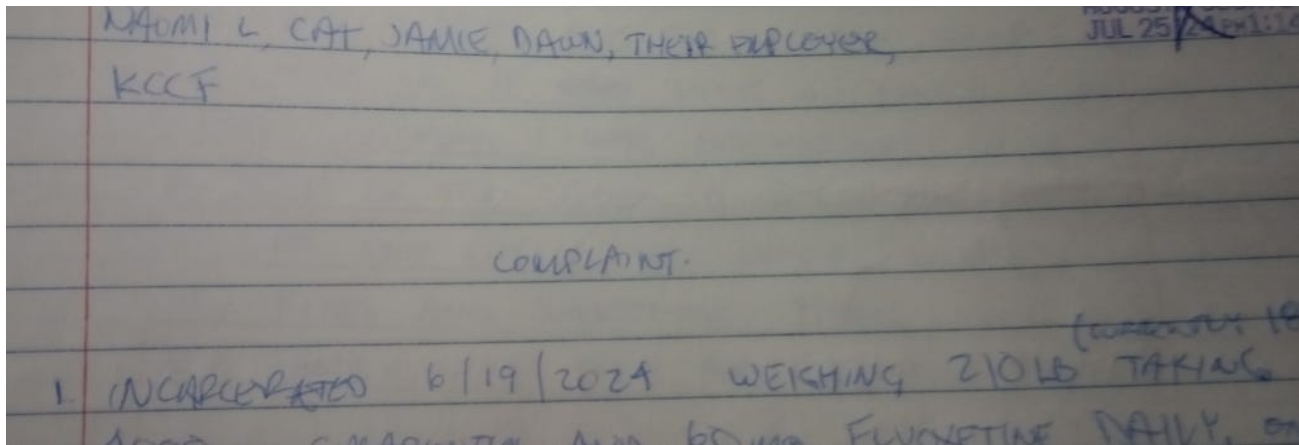 NAOMI L, CAT, JAMIE, DAWN, THEIR EMPLOYER,
JUL 25 24 PM 1:14
KCCF
COMPLAINT.
(CURRENTLY 18
1. INCARCERATED 6/19/2024 WEIGHING 210LB TAKING
AND 60mg FLUOXETINE DAILY